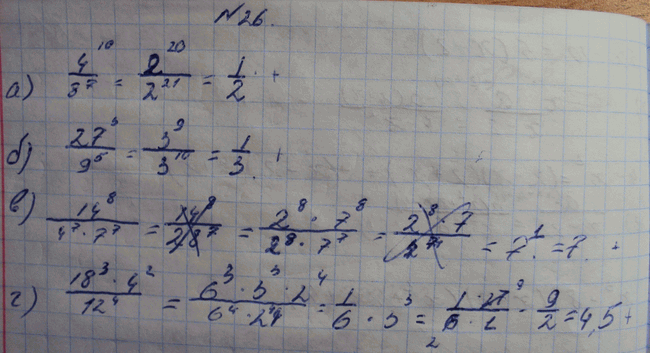 №26.
а) 4^10/8^7 = 2^20/2^21 = 1/2. +
б) 27^3/9^5 = 3^9/3^10 = 1/3. +
в) 14^8/4^7·7^7 = = 2^8·7^8/2^8·7^7 = = 7^1. = 7. +
г) 18^3·4^2/12^4 = 6^3·3^3·2^4/6^4·2^4 = 1/6·3^3 = 1·27^9/6·1_2 = 9/2 = 4,5 +